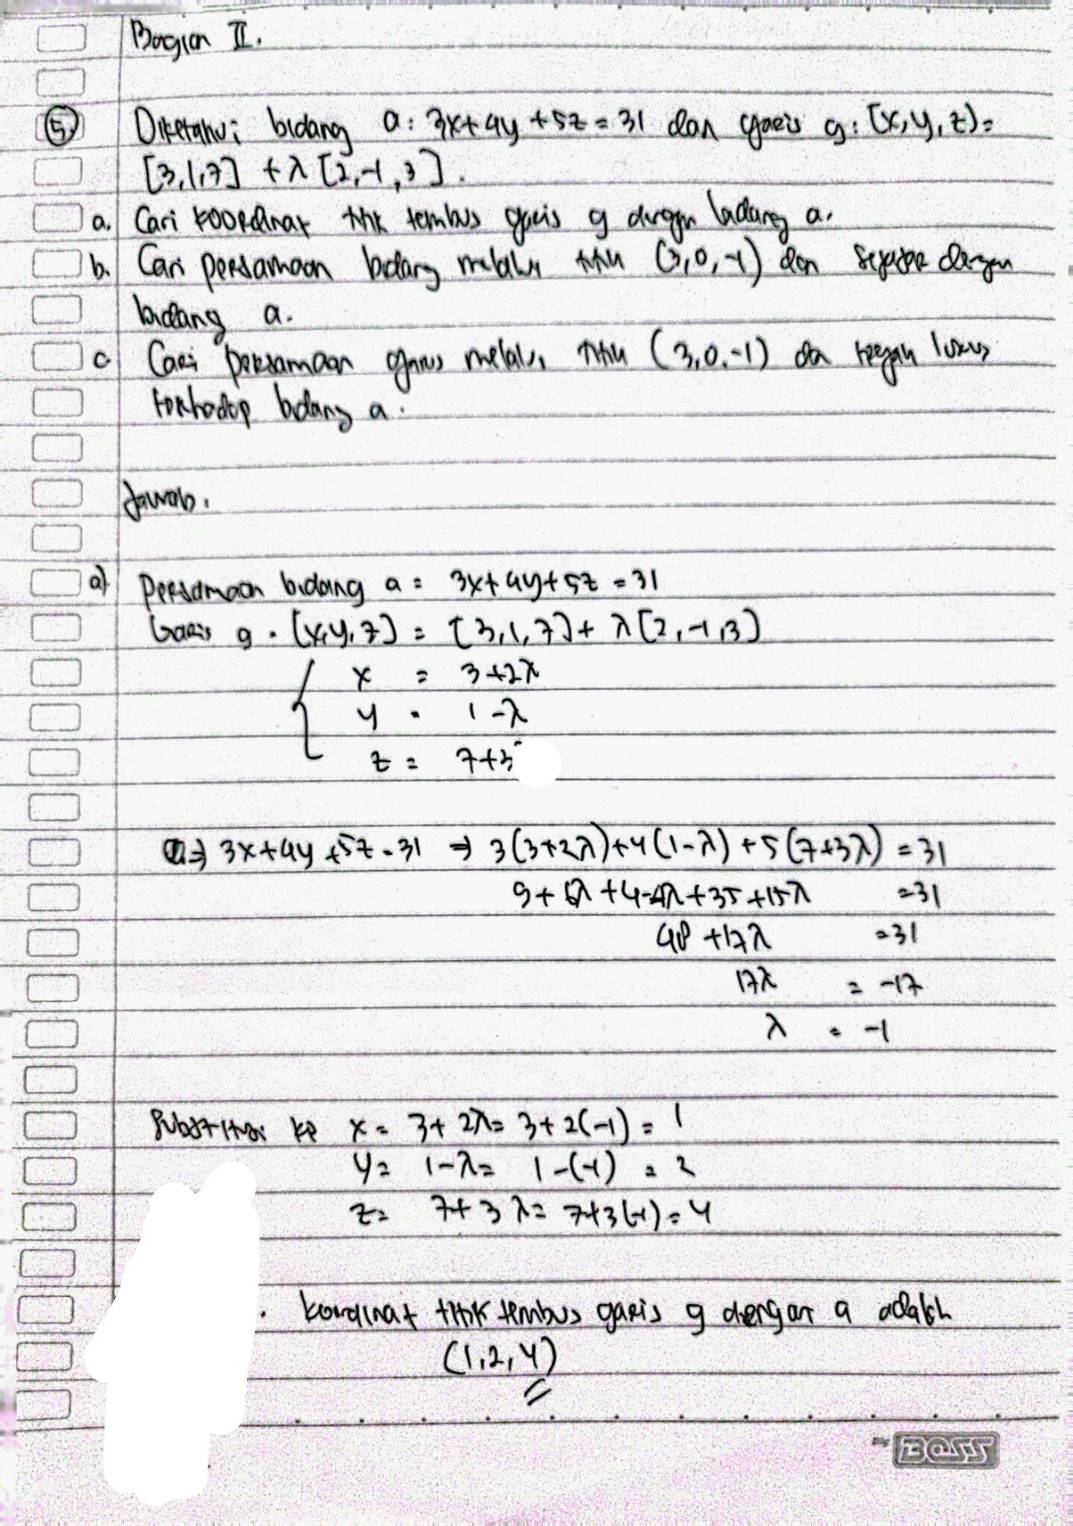 Bagian II.
5. Diketahui bidang a: 3x+4y+5z=31 dan garis g: [x,y,z)=
[3,1,7] + λ [2,-1,3].
a. Cari koordinat titik tembus garis g dengan bidang a.
b. Cari persamaan bidang melalui titik (3,0,-1) dan sejajar dengan
bidang a.
c Cari persamaan garis melalui titik (3,0,-1) dan tegak lurus
terhadap bidang a.
Jawab:
a) Persamaan bidang a = 3x+4y+5z=31
Garis g: [x,y,z] = [3,1,7]+ λ[2,-1,3]
x = 3+2λ
y = 1-λ
z = 7+3
a⇒ 3x+4y+5z=31 ⇒ 3(3+2λ)+4(1-λ)+5(7+3λ)=31
9+6λ+4-4λ+35+15λ =31
48+17λ =31
17λ = -17
λ = -1
Substitusi ke x = 3+2λ= 3+2(-1)= 1
y= 1-λ= 1-(-1) = 2
z= 7+3λ= 7+3(-1)=4
. koordinat titik tembus garis g dengan a adalah
(1,2,4)
BOSS